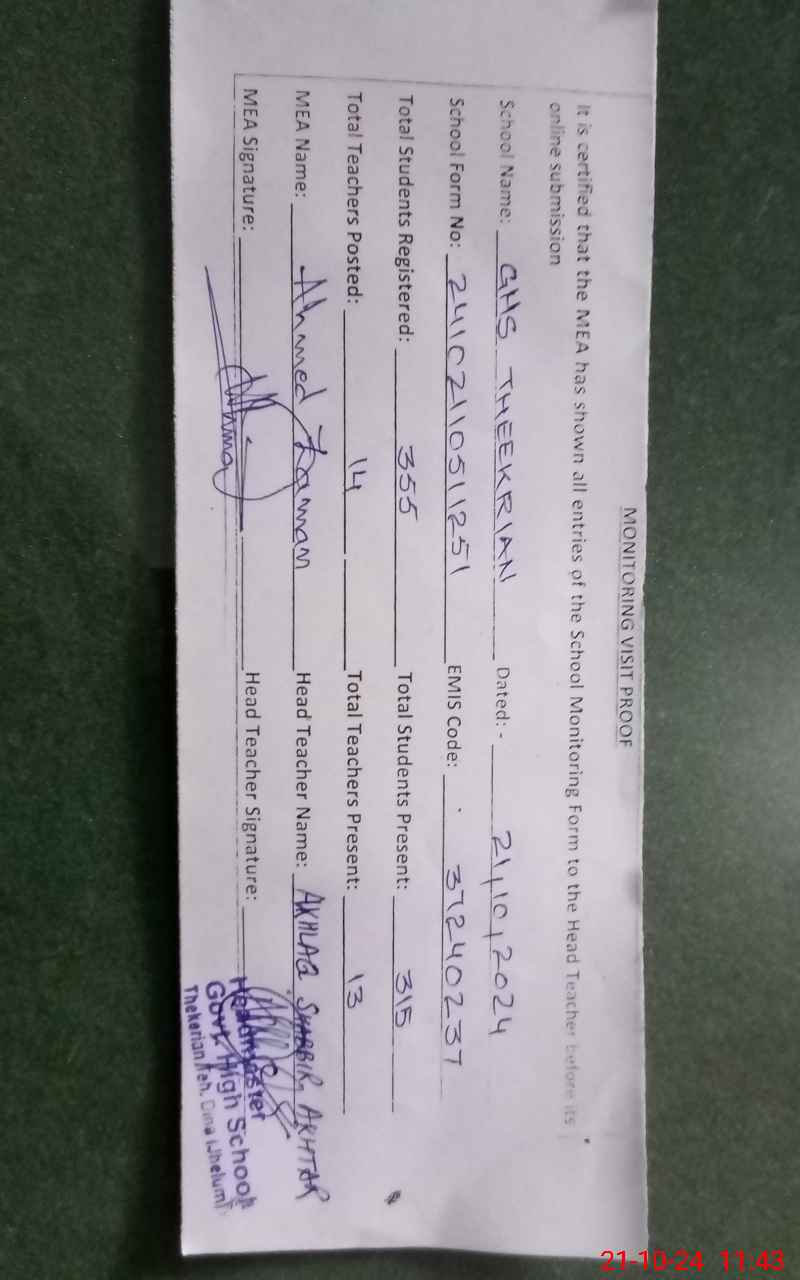 MONITORING VISIT PROOF
It is certified that the MEA has shown all entries of the School Monitoring Form to the Head Teacher before its
online submission
School Name: GHS THEEKRIAN Dated: - 21,10,2024
School Form No: 24102110511251 EMIS Code: 37240237
Total Students Registered: 355 Total Students Present: 315
Total Teachers Posted: 14 Total Teachers Present: 13
MEA Name: Ahmed Zaman Head Teacher Name: AKHLAQ SHABBIR AKHTAR
MEA Signature: Head Teacher Signature:
Headmaster
Govt. High School
Thekerian Teh. Dina (Jhelum)
21-10-24 11:43